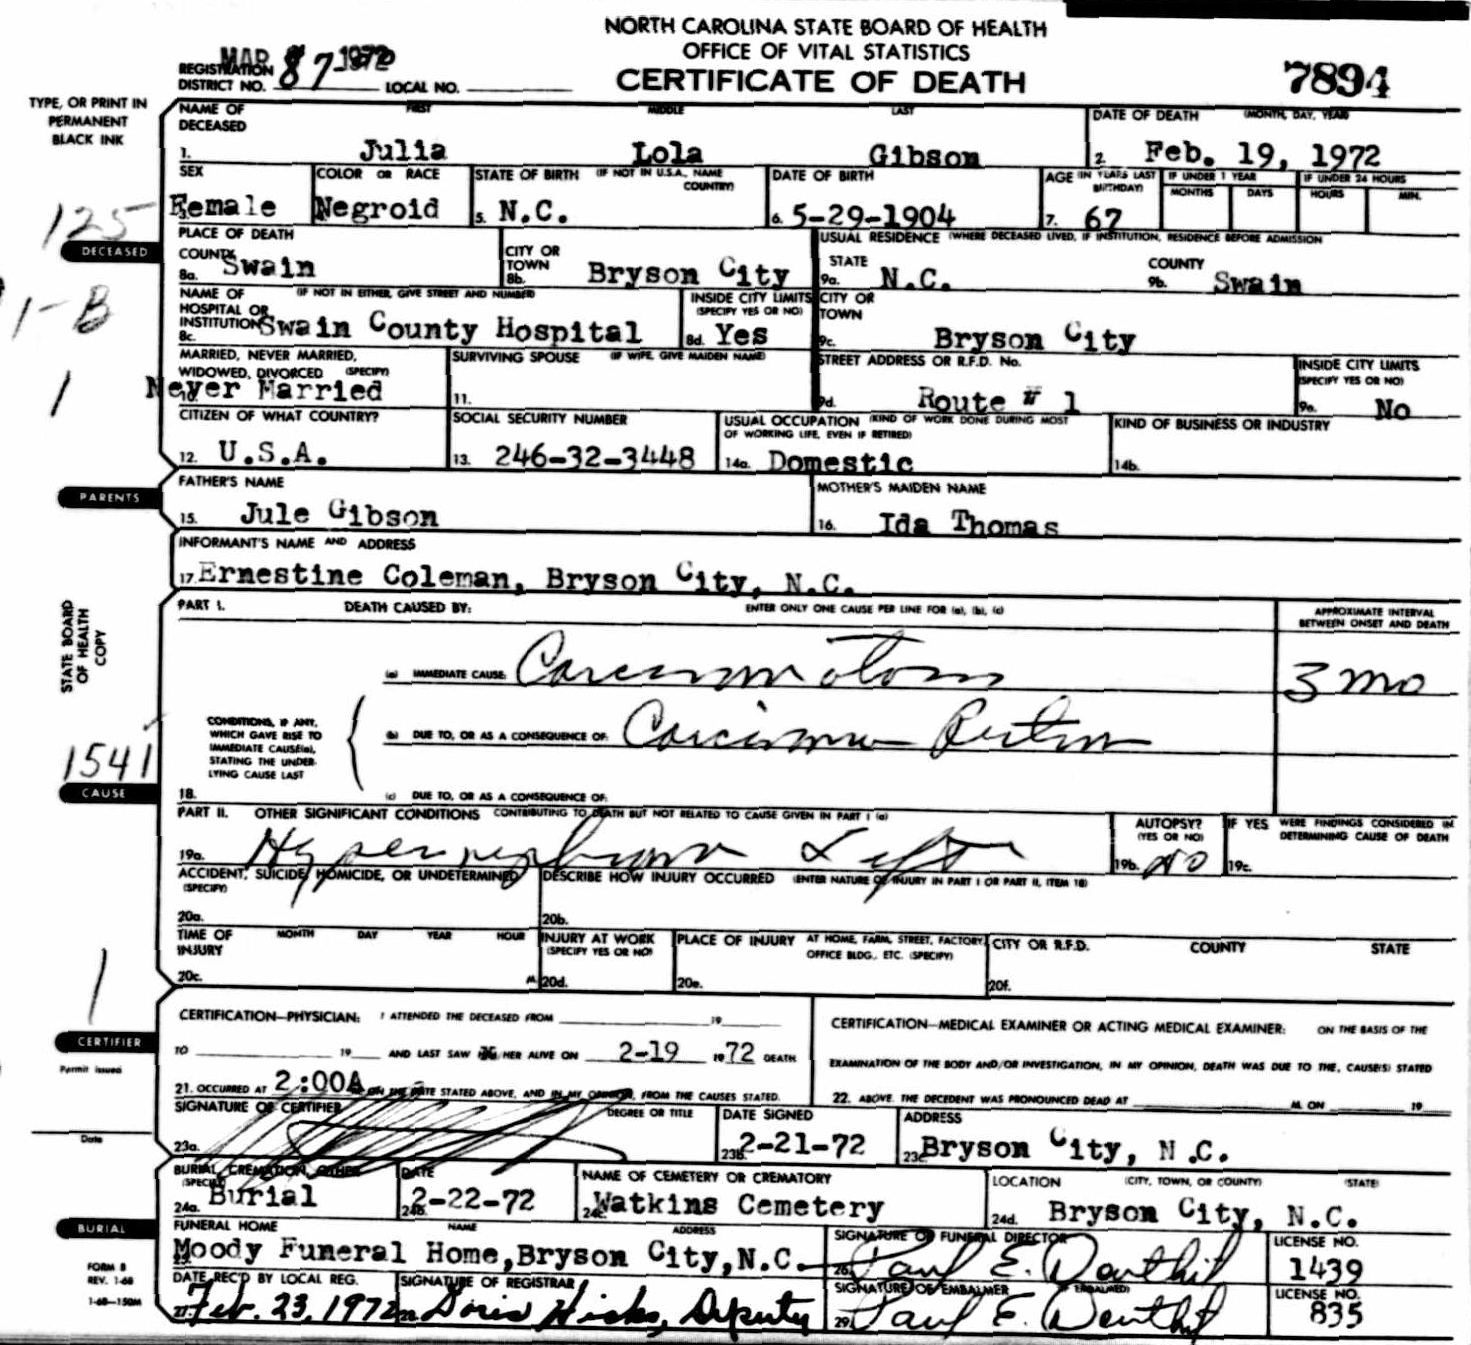 NORTH CAROLINA STATE BOARD OF HEALTH
OFFICE OF VITAL STATISTICS
CERTIFICATE OF DEATH
7894
MAR 8 1972
REGISTRATION DISTRICT NO. 87 LOCAL NO.
TYPE, OR PRINT IN
PERMANENT
BLACK INK
NAME OF DECEASED FIRST MIDDLE LAST DATE OF DEATH (MONTH, DAY, YEAR)
1. Julia Lola Gibson 2. Feb. 19, 1972
SEX COLOR OR RACE STATE OF BIRTH (IF NOT IN U.S.A., NAME COUNTRY) DATE OF BIRTH AGE (IN YEARS LAST BIRTHDAY) IF UNDER 1 YEAR IF UNDER 24 HOURS
MONTHS DAYS HOURS MIN.
Female Negroid 5. N.C. 6. 5-29-1904 7. 67
125
DECEASED
PLACE OF DEATH USUAL RESIDENCE (WHERE DECEASED LIVED, IF INSTITUTION, RESIDENCE BEFORE ADMISSION
COUNTY CITY OR TOWN STATE COUNTY
8a. Swain 8b. Bryson City 9a. N.C. 9b. Swain
1-B
NAME OF HOSPITAL OR INSTITUTION (IF NOT IN EITHER, GIVE STREET AND NUMBER) INSIDE CITY LIMITS (SPECIFY YES OR NO) CITY OR TOWN
8c. Swain County Hospital 8d. Yes 9c. Bryson City
MARRIED, NEVER MARRIED, WIDOWED, DIVORCED (SPECIFY) SURVIVING SPOUSE (IF WIFE, GIVE MAIDEN NAME) STREET ADDRESS OR R.F.D. No. INSIDE CITY LIMITS (SPECIFY YES OR NO)
1
Never Married 11. 9d. Route # 1 9e. No
CITIZEN OF WHAT COUNTRY? SOCIAL SECURITY NUMBER USUAL OCCUPATION (KIND OF WORK DONE DURING MOST OF WORKING LIFE, EVEN IF RETIRED) KIND OF BUSINESS OR INDUSTRY
12. U.S.A. 13. 246-32-3448 14a. Domestic 14b.
PARENTS
FATHER'S NAME MOTHER'S MAIDEN NAME
15. Jule Gibson 16. Ida Thomas
INFORMANT'S NAME AND ADDRESS
17. Ernestine Coleman, Bryson City, N.C.
STATE BOARD
OF HEALTH
COPY
PART I. DEATH CAUSED BY: ENTER ONLY ONE CAUSE PER LINE FOR (a), (b), (c) APPROXIMATE INTERVAL BETWEEN ONSET AND DEATH
(a) IMMEDIATE CAUSE: Carcinomatosis 3 mo
CONDITIONS, IF ANY,
WHICH GAVE RISE TO
IMMEDIATE CAUSE(a),
STATING THE UNDER-
LYING CAUSE LAST
(b) DUE TO, OR AS A CONSEQUENCE OF: Carcinoma Rectum
1541
CAUSE
18. (c) DUE TO, OR AS A CONSEQUENCE OF:
PART II. OTHER SIGNIFICANT CONDITIONS CONTRIBUTING TO DEATH BUT NOT RELATED TO CAUSE GIVEN IN PART I (a) AUTOPSY? (YES OR NO) IF YES WERE FINDINGS CONSIDERED IN DETERMINING CAUSE OF DEATH
19a. Hypernephroma Left 19b. NO 19c.
ACCIDENT, SUICIDE, HOMICIDE, OR UNDETERMINED (SPECIFY) DESCRIBE HOW INJURY OCCURRED (ENTER NATURE OF INJURY IN PART I OR PART II, ITEM 18)
20a. 20b.
TIME OF INJURY MONTH DAY YEAR HOUR INJURY AT WORK (SPECIFY YES OR NO) PLACE OF INJURY AT HOME, FARM, STREET, FACTORY, OFFICE BLDG., ETC. (SPECIFY) CITY OR R.F.D. COUNTY STATE
20c. M. 20d. 20e. 20f.
1
CERTIFIER
Permit issued
Date
CERTIFICATION—PHYSICIAN: I ATTENDED THE DECEASED FROM 19
TO 19 AND LAST SAW HER ALIVE ON 2-19 1972 DEATH
21. OCCURRED AT 2:00A M. ON THE DATE STATED ABOVE, AND IN MY OPINION, FROM THE CAUSES STATED.
CERTIFICATION—MEDICAL EXAMINER OR ACTING MEDICAL EXAMINER: ON THE BASIS OF THE
EXAMINATION OF THE BODY AND/OR INVESTIGATION, IN MY OPINION, DEATH WAS DUE TO THE, CAUSE(S) STATED
22. ABOVE. THE DECEDENT WAS PRONOUNCED DEAD AT M. ON 19
SIGNATURE OF CERTIFIER DEGREE OR TITLE DATE SIGNED ADDRESS
23a. 23b. 2-21-72 23c. Bryson City, N.C.
BURIAL, CREMATION, OTHER (SPECIFY) DATE NAME OF CEMETERY OR CREMATORY LOCATION (CITY, TOWN, OR COUNTY) (STATE)
24a. Burial 24b. 2-22-72 24c. Watkins Cemetery 24d. Bryson City, N.C.
BURIAL
FUNERAL HOME NAME ADDRESS SIGNATURE OF FUNERAL DIRECTOR LICENSE NO.
25. Moody Funeral Home, Bryson City, N.C. 26. Paul E. Douthit 1439
FORM 8
REV. 1-68
1-68—150M
DATE REC'D BY LOCAL REG. SIGNATURE OF REGISTRAR SIGNATURE OF EMBALMER (IF EMBALMED) LICENSE NO.
27. Feb. 23, 1972 28. Doris Hicks, Deputy 29. Paul E. Douthit 835